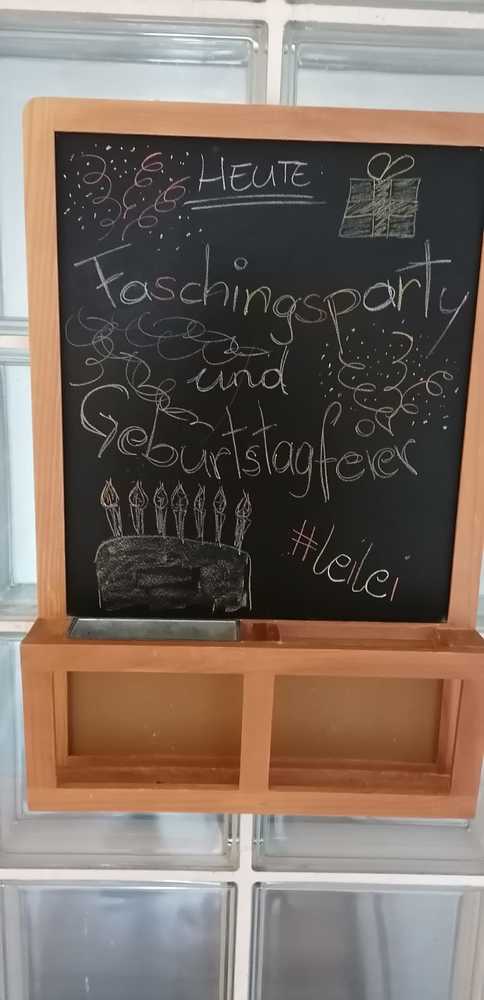 HEUTE
Faschingsparty
und
Geburtstagfeier
#leilei